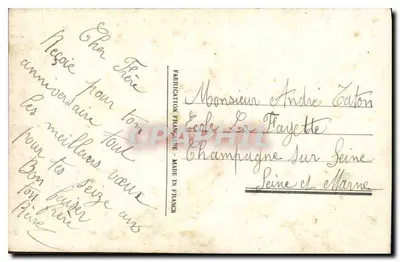 Cher Frère
Reçois pour ton
anniversaire tout
les meilleurs vœux
pour tes seize ans
Bon baiser
ton frère
FABRICATION FRANÇAISE - MADE IN FRANCE
Monsieur André
Ecole La Fayette
Champagne sur Seine
Seine et Marne